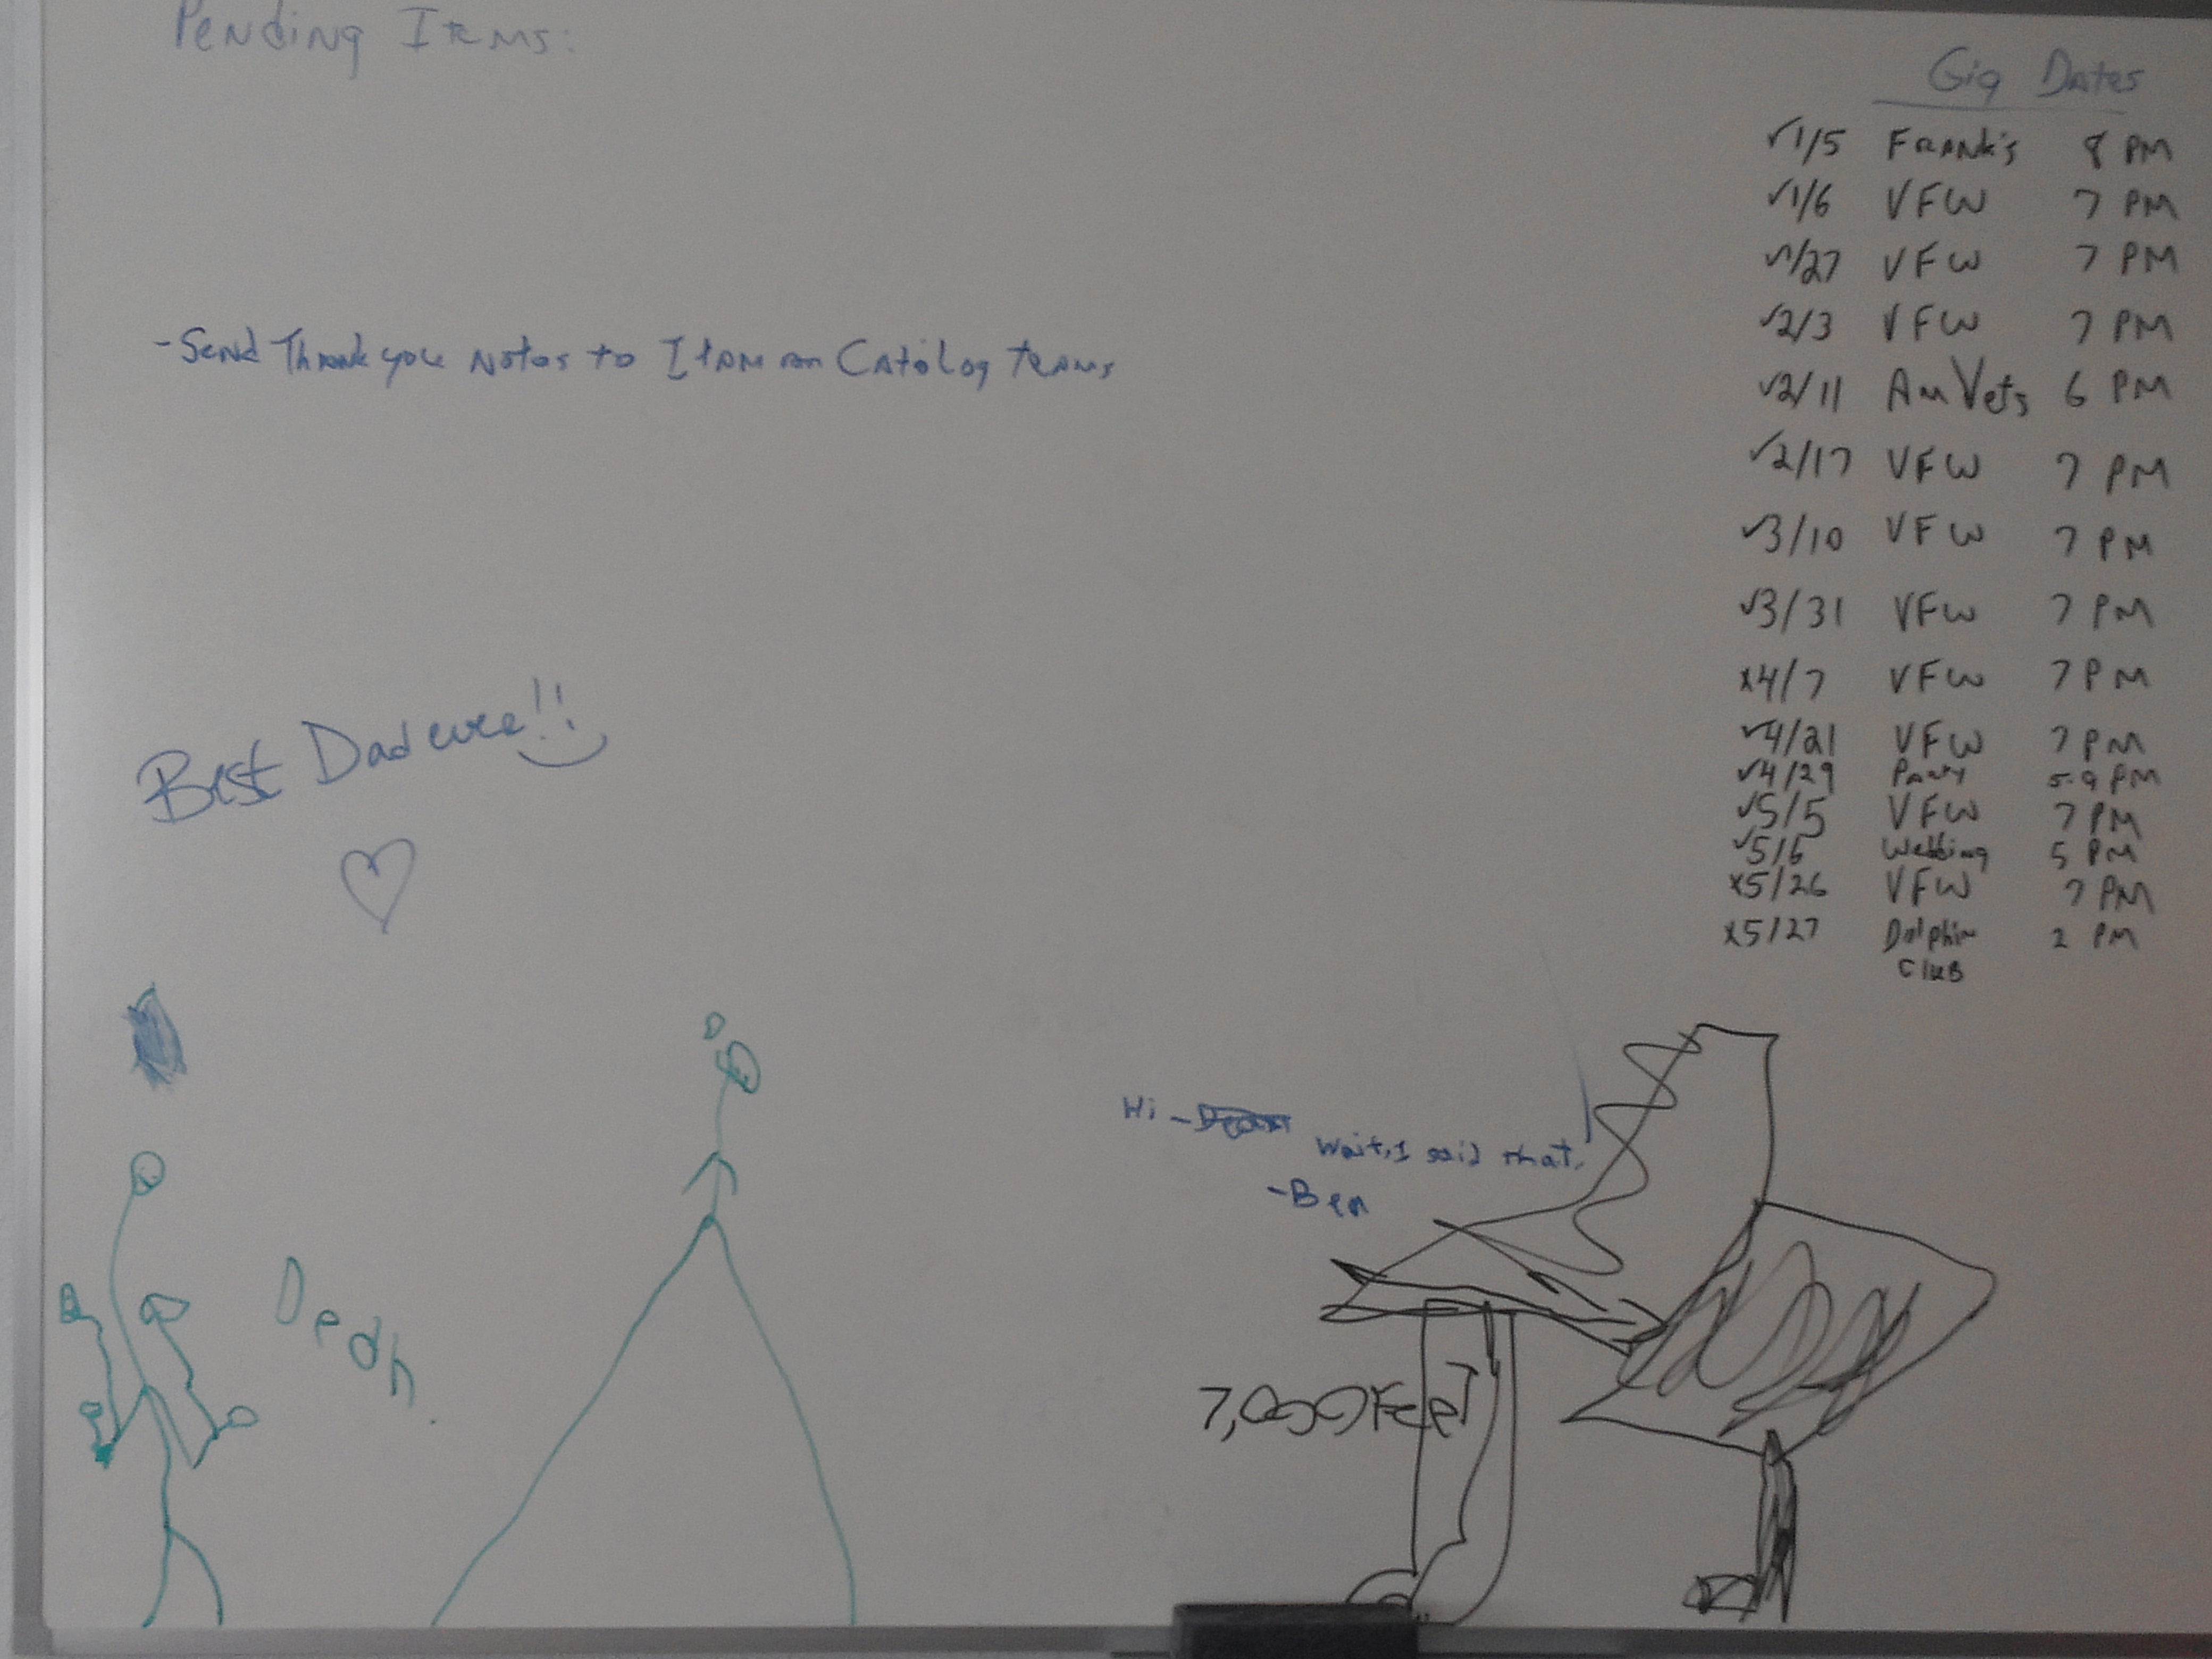 Pending Items:
-Send Thank you Notes to ITAM an Catalog teams
Best Dad ever!!
Gig Dates
√1/5 Frank's 8 PM
√1/6 VFW 7 PM
√1/27 VFW 7 PM
√2/3 VFW 7 PM
√2/11 AmVets 6 PM
√2/17 VFW 7 PM
√3/10 VFW 7 PM
√3/31 VFW 7 PM
x4/7 VFW 7 PM
√4/21 VFW 7 PM
√4/29 Party 5-9 PM
√5/5 VFW 7 PM
√5/6 Wedding 5 PM
x5/26 VFW 7 PM
x5/27 Dolphin 2 PM
Club
Hi -
Wait, I said that.
-Ben
Dedh.
7,000 Feet